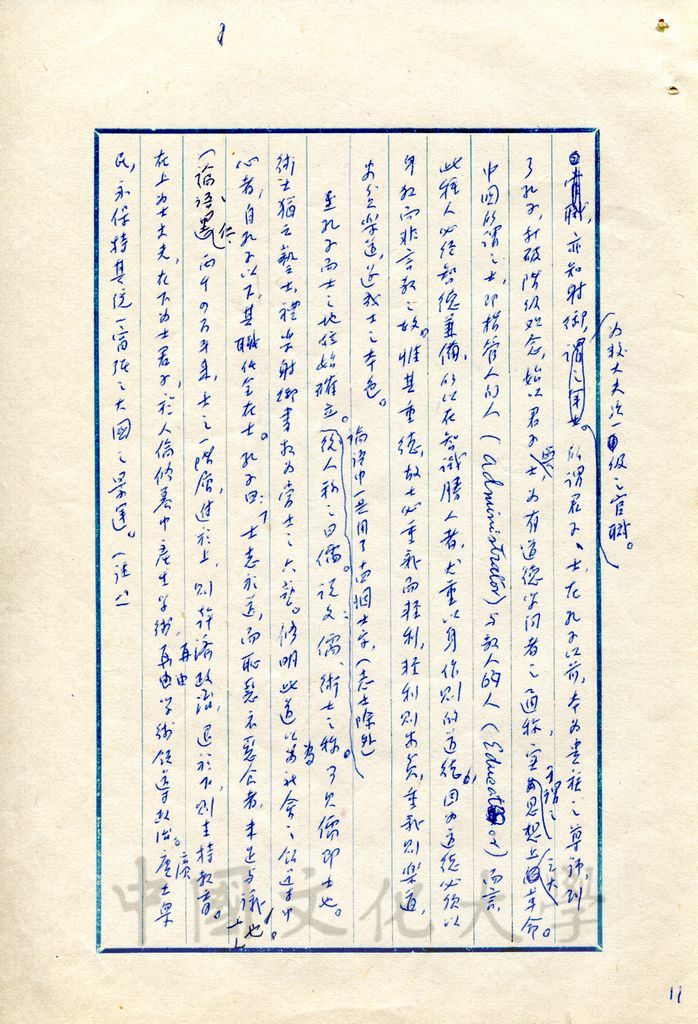 為較大夫次一級之官職。
職,亦知射御,謂之士。所謂君子、士在孔子以前,本為貴族之尊稱,到
了孔子,打破階級觀念,始以君子與士為有道德學問者之通稱,實為思想上之大革命。
中國所謂之士,即指管人的人(administrator)與教人的人(Educator)而言,
此種人必須智德兼備,所以在智識勝人者,尤重以身作則的道德,因為道德必須以
身教而非言教之故。惟其重德,故士必重義而輕利,輕利則安貧,重義則樂道,
安貧樂道,遂成士之本色。
論語中一共用了 個士字,(志士除外)
至孔子而士之地位始確立。後人稱之曰儒。說文:儒、術士之稱。可見儒即士也。
術士猶云藝士,禮樂射御書數為當士之六藝。修明此道以為社會之領導中
心者,自孔子以下,其職任全在士。孔子曰:「士志於道,而恥惡衣惡食者,未足與議也」。
(論語里仁)兩千四百年來,士之一階層,進於上,則幹濟政治,退於下,則主持教育。
在上為士大夫,在下為士君子,於人倫修養中產生學術,再由學術領導政治。廣土眾
民,永保持其統一富強之大國之景運。(註 )
11
中國文化大學